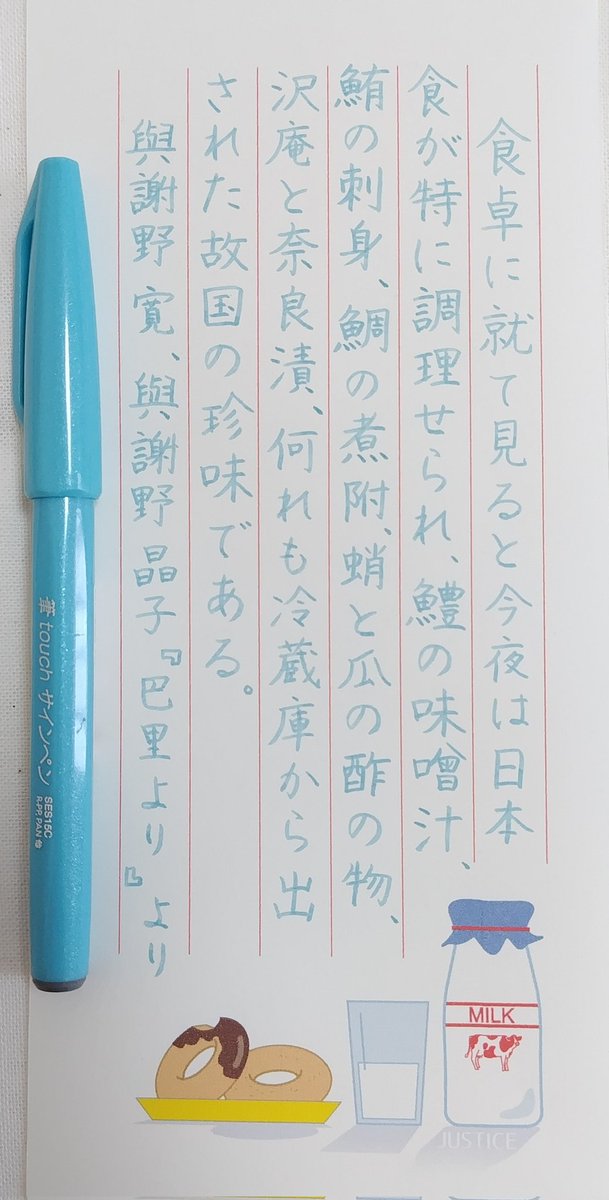 食卓に就て見ると今夜は日本
食が特に調理せられ、鱧の味噌汁、
鮪の刺身、鯛の煮附、蛸と瓜の酢の物、
沢庵と奈良漬、何れも冷蔵庫から出
された故国の珍味である。
與謝野 寛、與謝野 晶子『巴里より』より
筆touchサインペン
SES15C
R.PP, PAN
MILK
JUSTICE